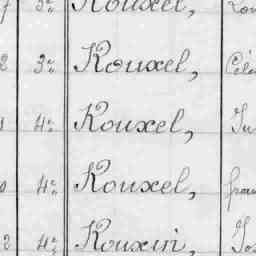 3e Rouxel,
2 3e Rouxel, Céle
1 4e Rouxel, Ju
4e Rouxel, fran
2 4e Rouxin, Jos